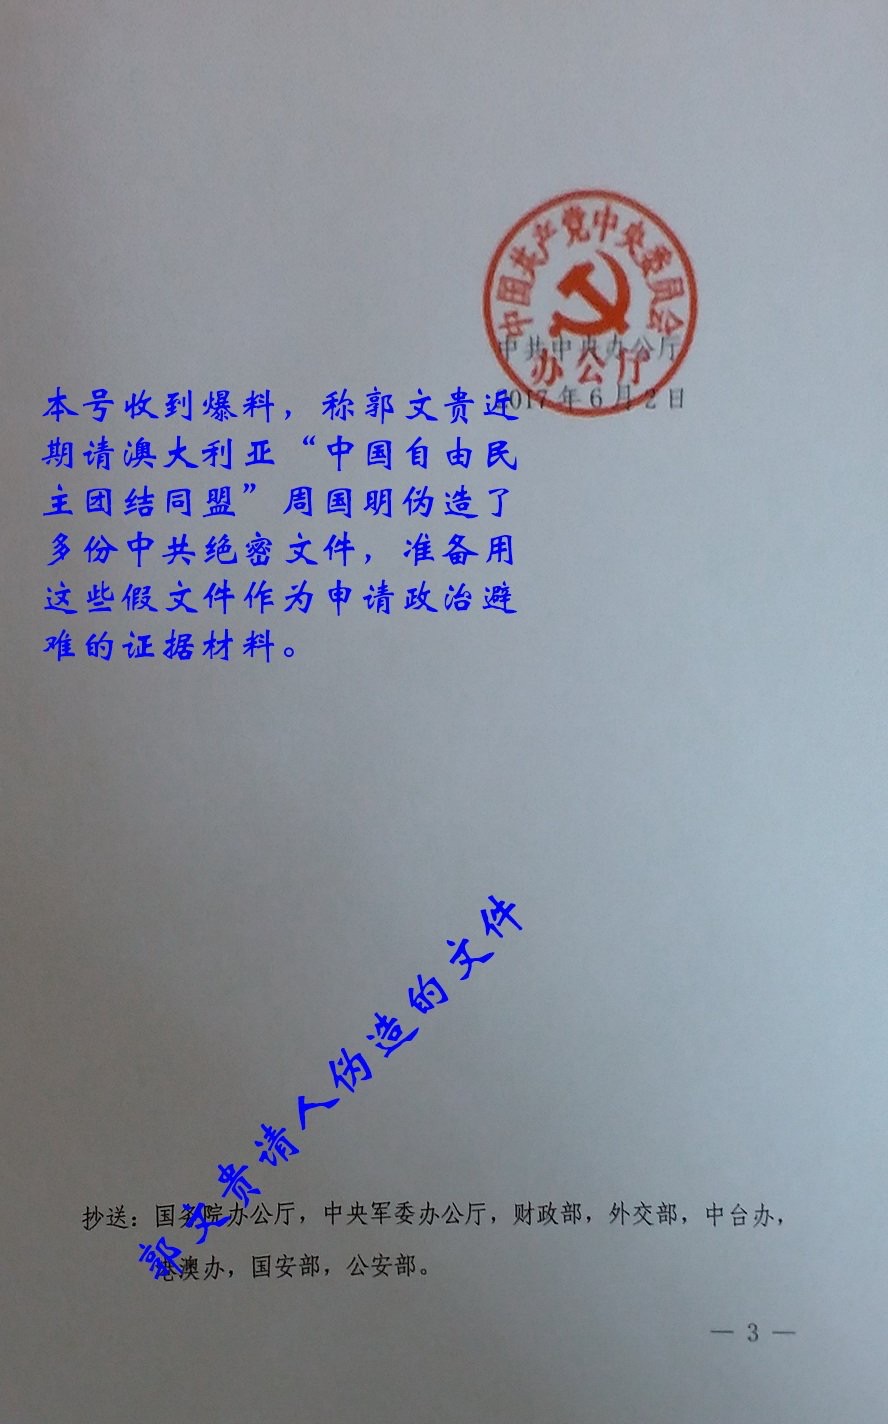 中国共产党中央委员会
办公厅
中共中央办公厅
2017年6月2日
本号收到爆料，称郭文贵近
期请澳大利亚“中国自由民
主团结同盟”周国明伪造了
多份中共绝密文件，准备用
这些假文件作为申请政治避
难的证据材料。
郭文贵请人伪造的文件
抄送：国务院办公厅，中央军委办公厅，财政部，外交部，中台办，
港澳办，国安部，公安部。
— 3 —